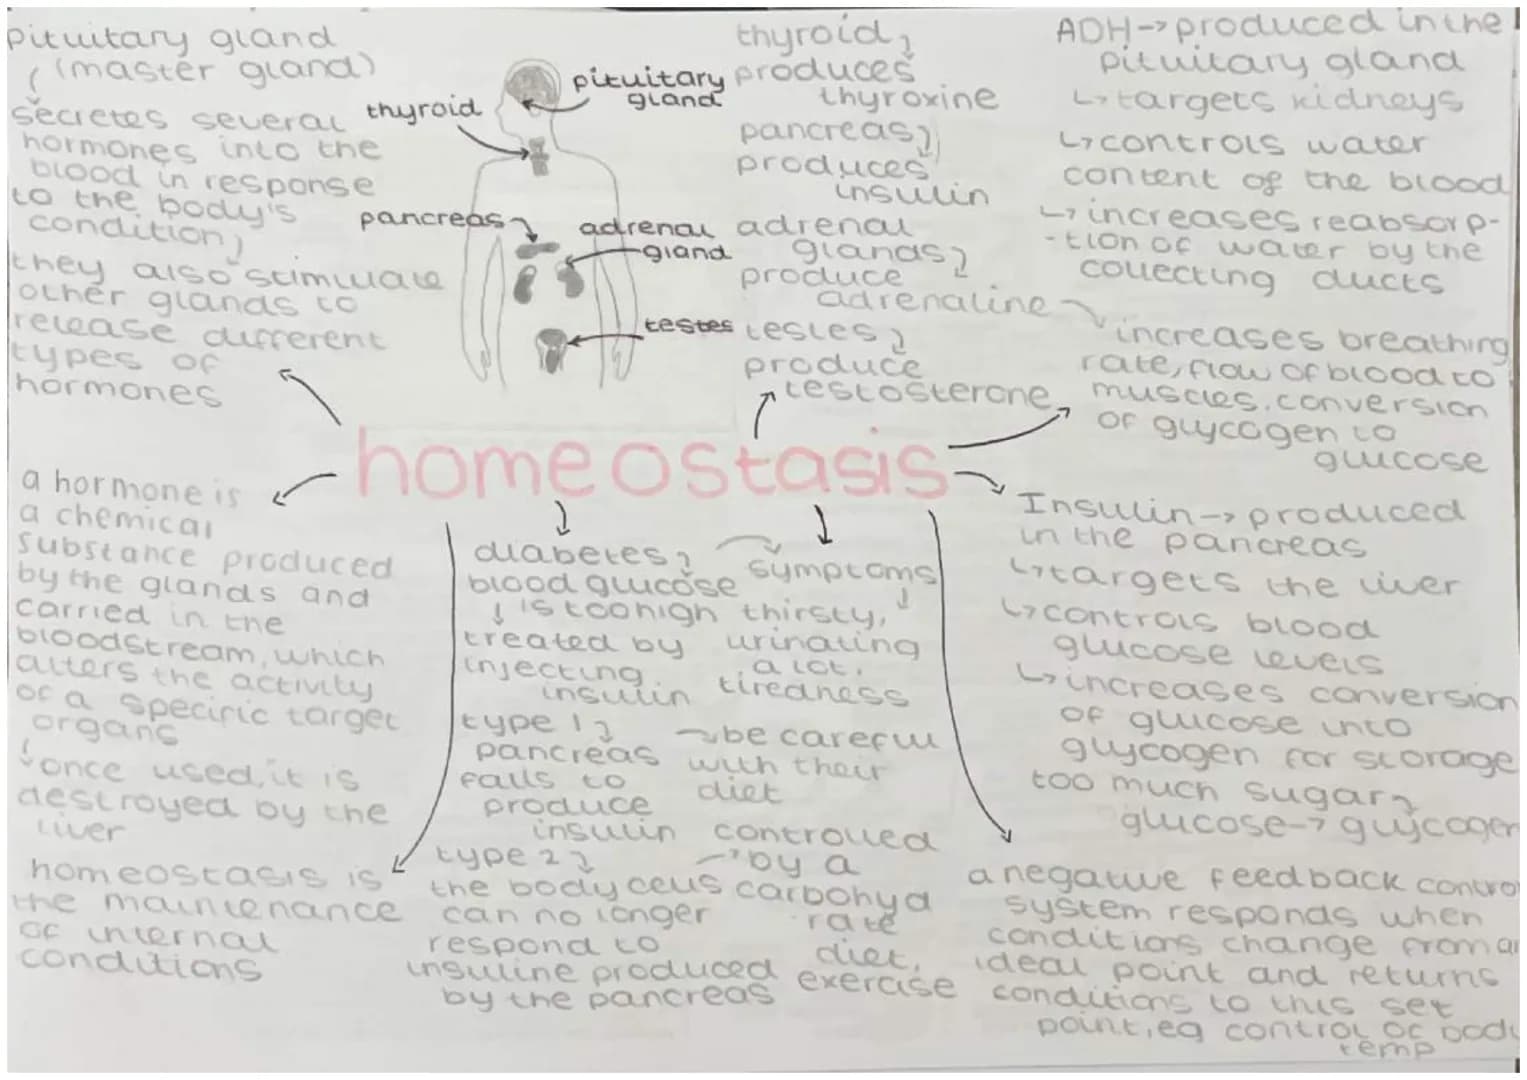 pituitary gland
(master gland)
secretes several
hormones into the
blood in response
to the body's
condition,
they also stimulate
other glands to
release different
types of
hormones
pituitary
gland
thyroid
pancreas
adrenal
gland
testes
thyroid,
produces
thyroxine
pancreas,
produces
insulin
adrenal
glands,
produce
adrenaline
testes,
produce
testosterone
ADH→produced in the
pituitary gland
↳targets kidneys
↳controls water
content of the blood
↳increases reabsorp-
-tion of water by the
collecting ducts
increases breathing
rate, flow of blood to
muscles, conversion
of glycogen to
glucose
homeostasis
a hormone is
a chemical
substance produced
by the glands and
carried in the
bloodstream, which
alters the activity
of a specific target
organs
once used, it is
destroyed by the
liver
homeostasis is
the maintenance
of internal
conditions
diabetes,
blood glucose
is too high
treated by
injecting
insulin
symptoms
thirsty,
urinating
a lot,
tiredness
type 1
pancreas
fails to
produce
insulin
be careful
with their
diet
type 2
the body cells
can no longer
respond to
insuline produced
by the pancreas
controlled
by a
carbohyd
rate
diet,
exercise
Insulin→produced
in the pancreas
↳targets the liver
↳controls blood
glucose levels
↳increases conversion
of glucose into
glycogen for storage
too much sugar
glucose→glycogen
a negative feedback contro
system responds when
conditions change from a
ideal point and returns
conditions to this set
point, eg control of bod
temp